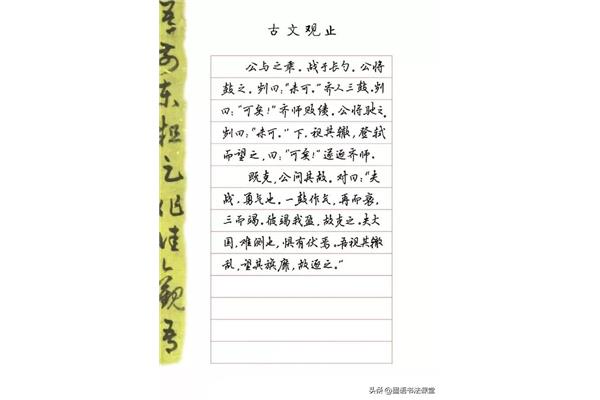 古文观止
公与之乘。战于长勺。公将
鼓之。刿曰:“未可。”齐人三鼓。刿
曰:“可矣!”齐师败绩。公将驰之。
刿曰:“未可。”下,视其辙,登轼
而望之,曰:“可矣!”遂逐齐师。
既克,公问其故。对曰:“夫
战,勇气也。一鼓作气,再而衰,
三而竭。彼竭我盈,故克之。夫大
国,难测也,惧有伏焉。吾视其辙
乱,望其旗靡,故逐之。”
头条 @墨语书法课堂